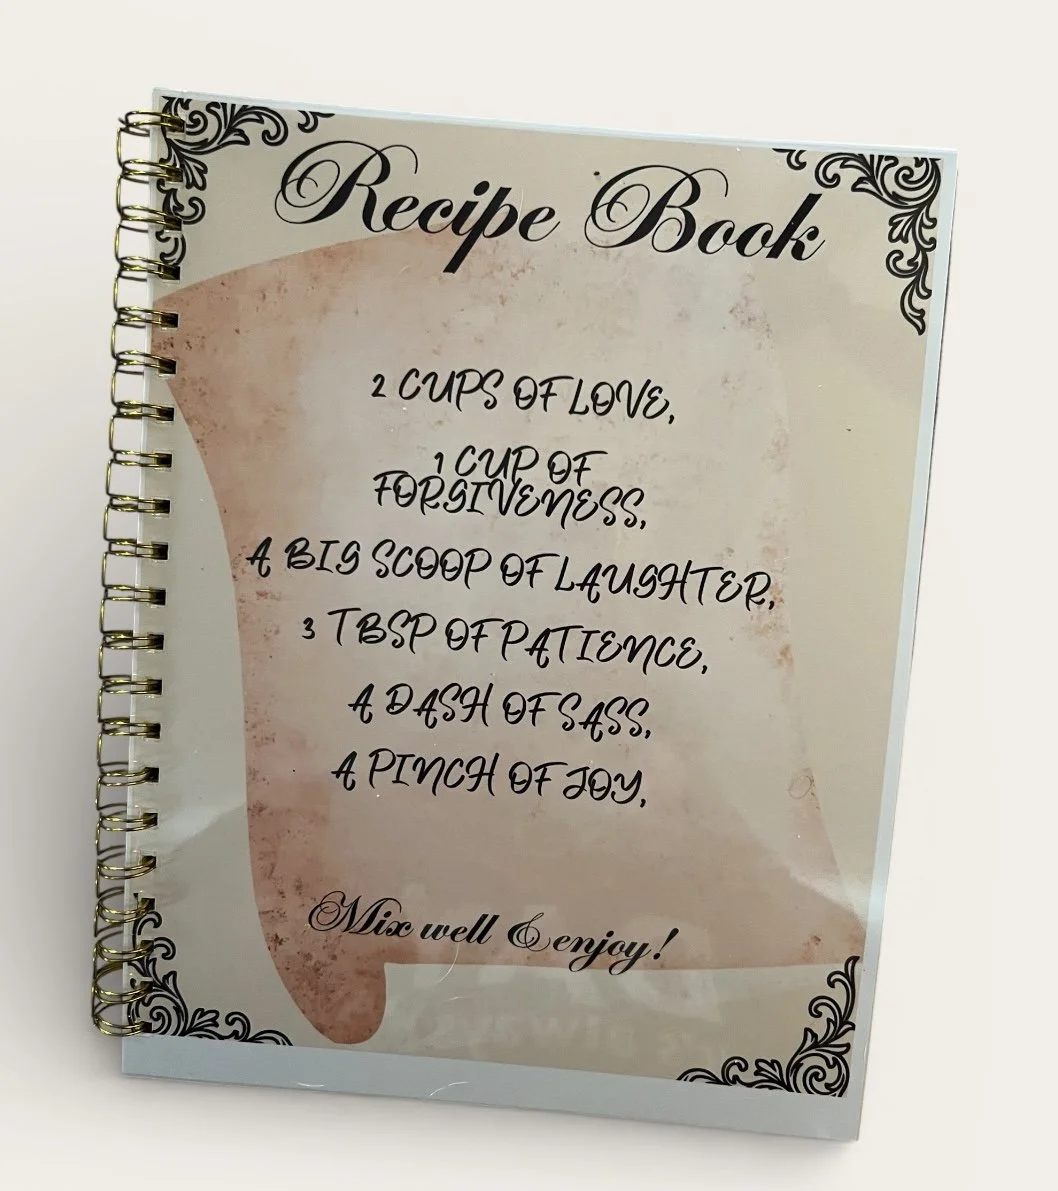 Recipe Book
2 CUPS OF LOVE,
1 CUP OF
FORGIVENESS,
A BIG SCOOP OF LAUGHTER,
3 TBSP OF PATIENCE,
A DASH OF SASS,
A PINCH OF JOY,
Mix well & enjoy!